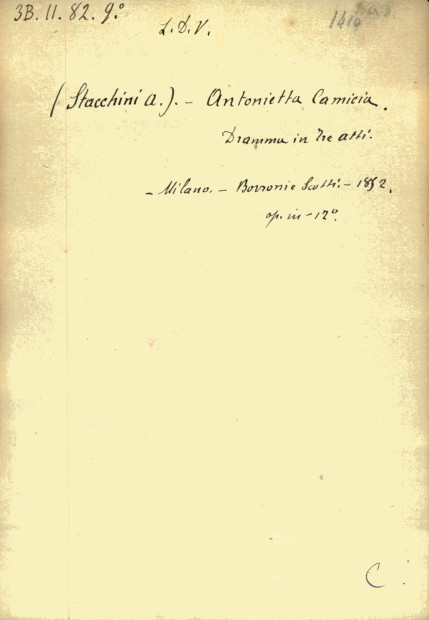 3B. 11. 82. 9.°
L. D. V.
(Stacchini A.). - Antonietta Camicia.
Dramma in Tre atti.
- Milano. - Borroni e Scotti. - 1852.
op. in - 12°.
C